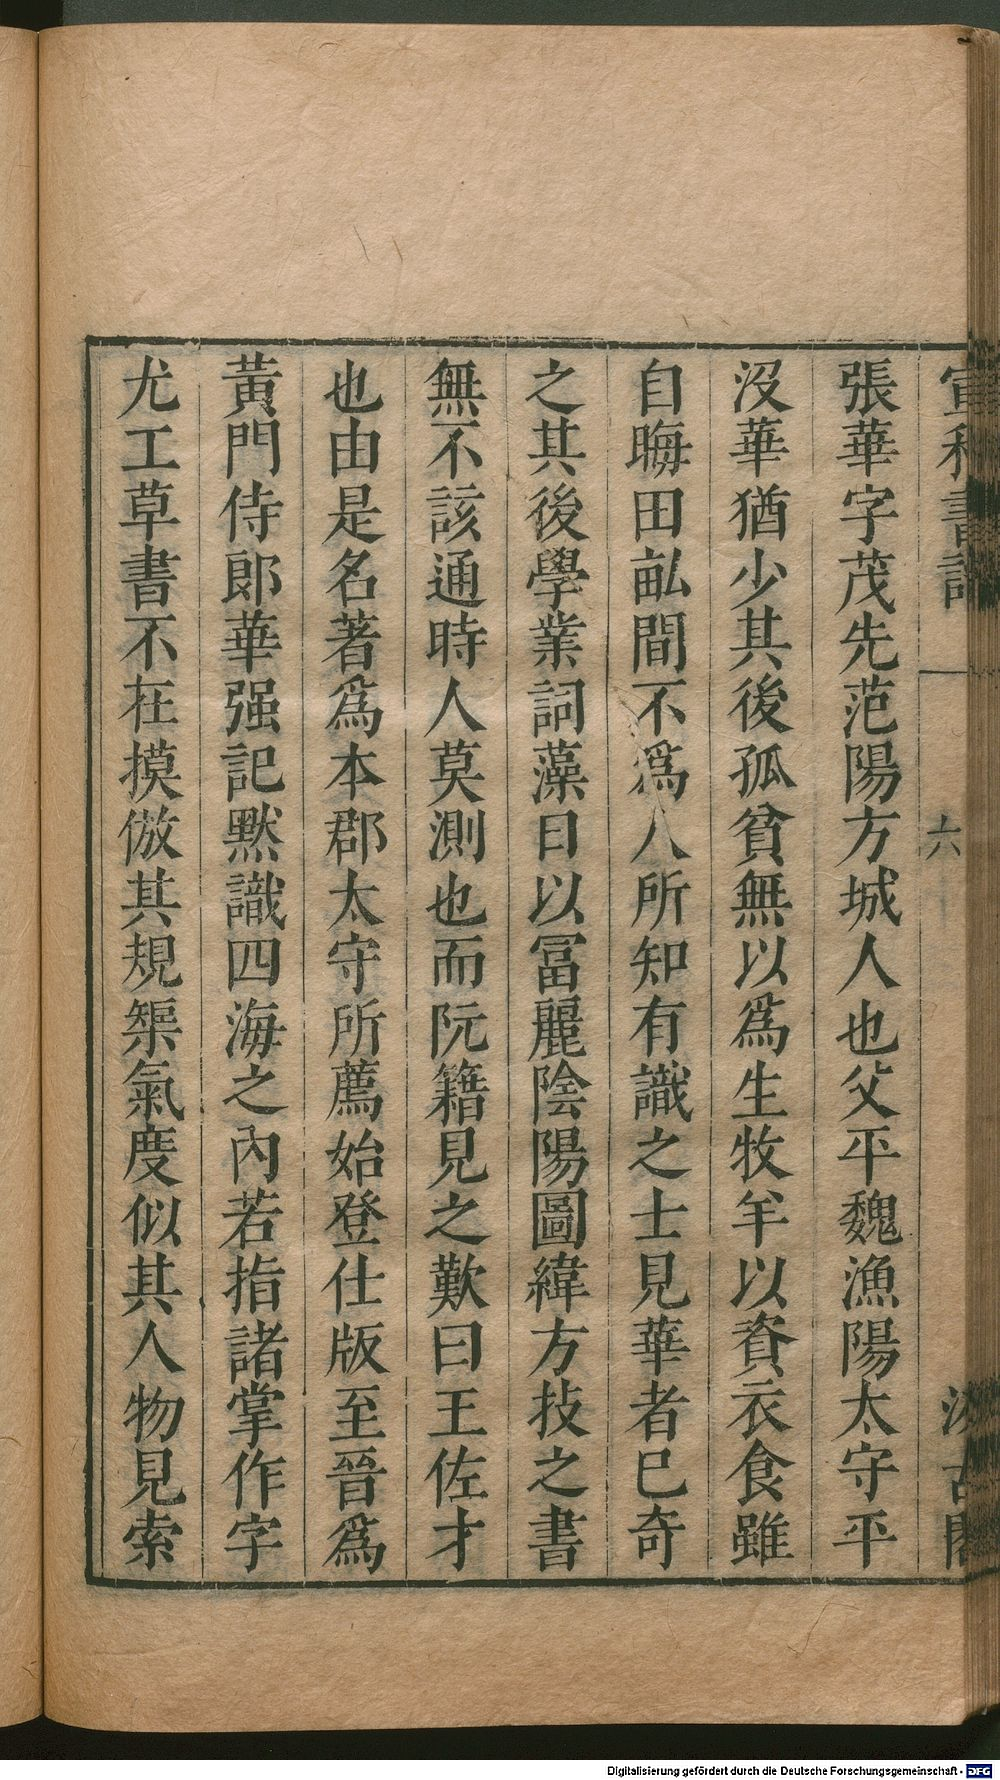 宣和書譜 六 汲古閣
張華字茂先范陽方城人也父平魏漁陽太守平
沒華猶少其後孤貧無以爲生牧羊以資衣食雖
自晦田畝間不爲人所知有識之士見華者已奇
之其後學業詞藻日以冨麗陰陽圖緯方技之書
無不該通時人莫測也而阮籍見之歎曰王佐才
也由是名著爲本郡太守所薦始登仕版至晉爲
黃門侍郎華强記默識四海之內若指諸掌作字
尤工草書不在摸倣其規榘氣度似其人物見索
Digitalisierung gefördert durch die Deutsche Forschungsgemeinschaft - DFG